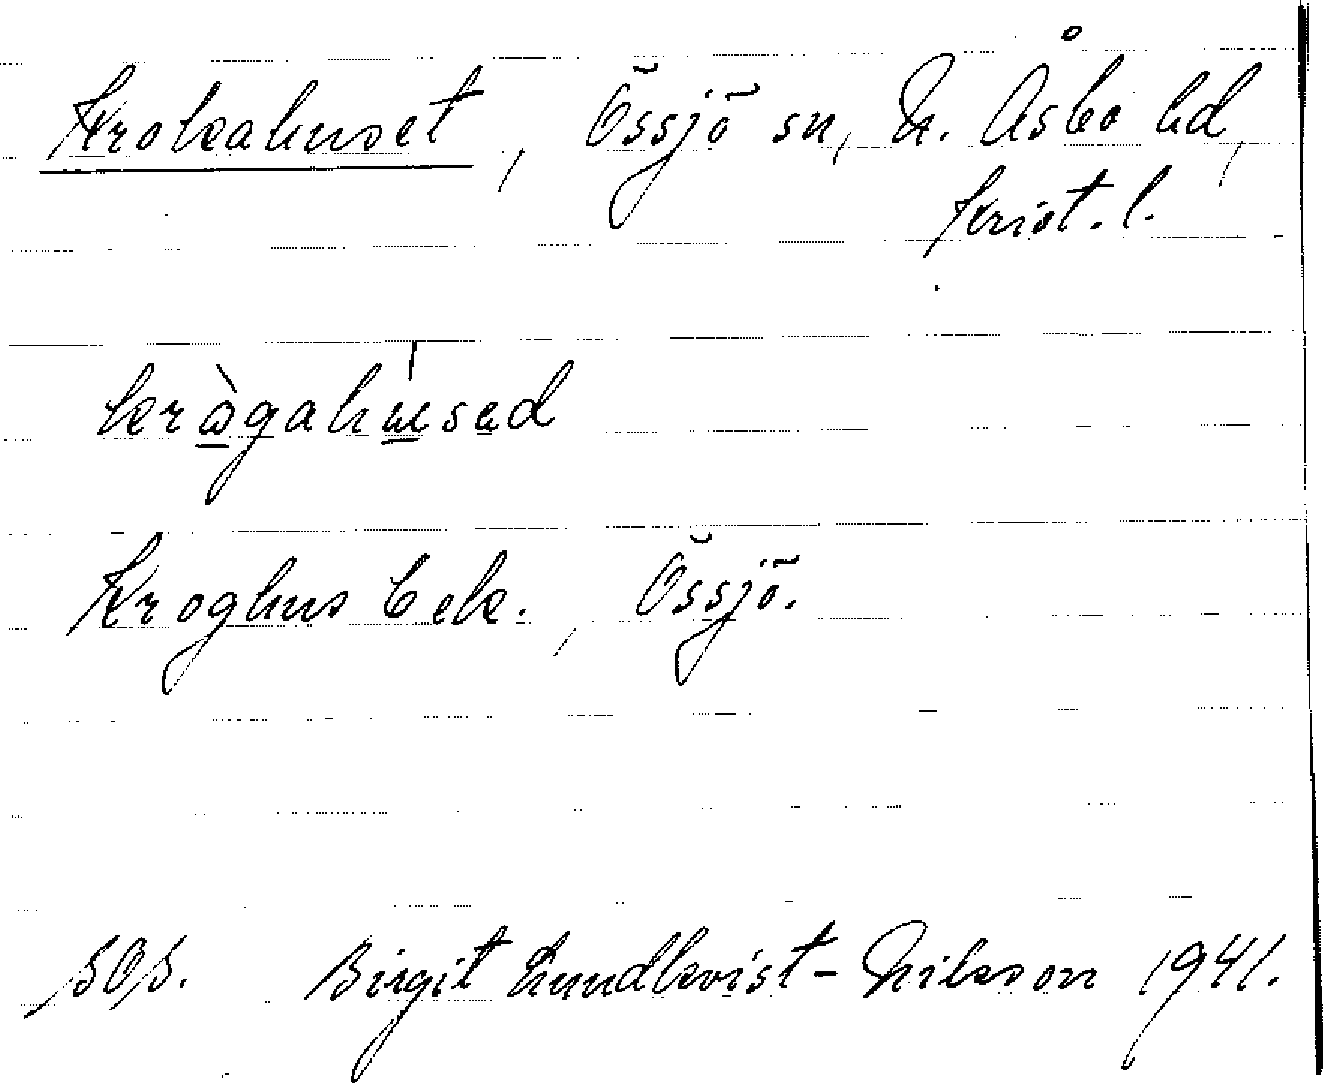 Krokahuset, Össjö sn, N. Åsbo hd,
Krist. l.
kràgahúsad
Kroghus bek., Össjö.
SOS. Birgit Lundkvist-Nilsson 1941.